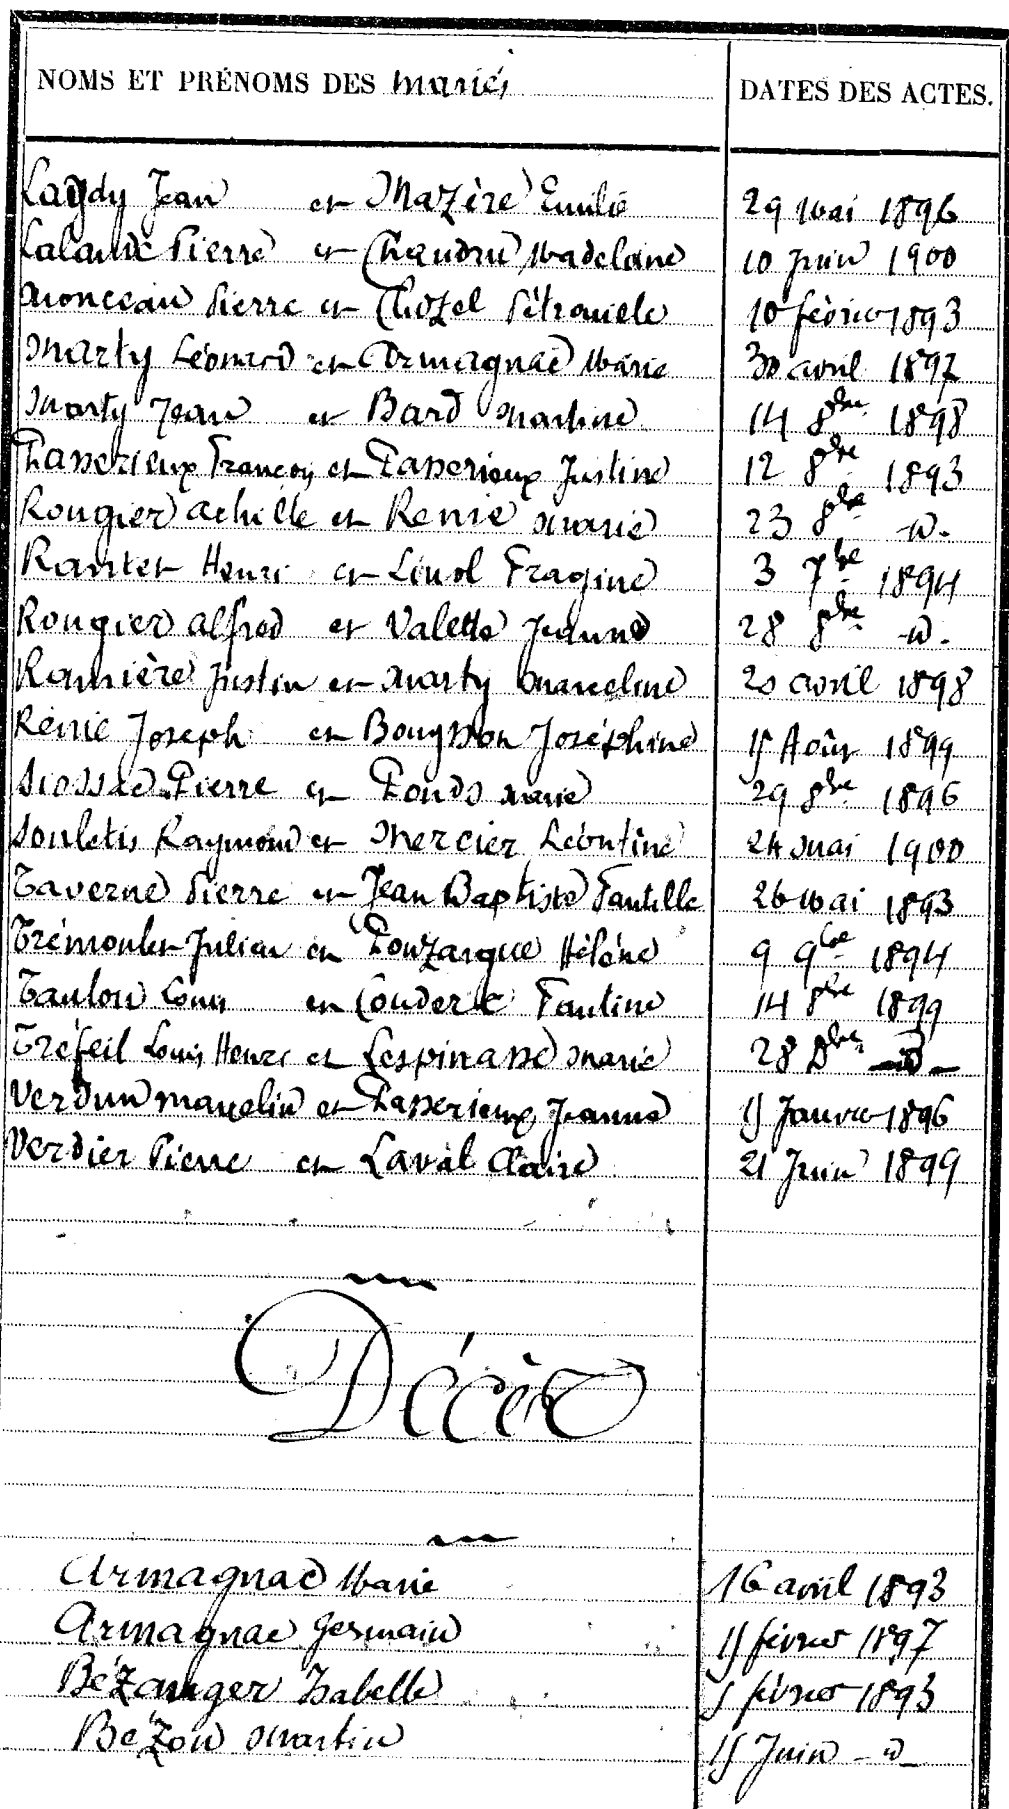 NOMS ET PRÉNOMS DES mariés DATES DES ACTES.
Lagdy Jean et Mazère Emilie 29 mai 1896
Lalande Pierre et Chaudru Madelaine 10 juin 1900
Monceau Pierre et Chozel Pétronille 10 février 1893
Marty Léonard et Armagnac Marie 30 avril 1897
Marty Jean et Bard Martine 14 8bre 1898
Passerieux François et Passerieux Justine 12 8bre 1893
Rougier Achille et Renie Marie 23 8bre d°.
Rantet Henri et Linol Fragine 3 7bre 1894
Rougier Alfred et Valette Jeanne 28 8bre d°.
Roumière Justin et Marty Marceline 20 avril 1898
Rénie Joseph et Bouysson Joséphine 15 Août 1899
Siossac Pierre et Pouds Marie 29 8bre 1896
Souletis Raymond et Mercier Léontine 24 mai 1900
Taverne Pierre et Jean Baptiste Pantille 26 mai 1893
Trémoulet Julien et Pouzargue Hélène 9 9bre 1894
Taulou Louis et Couderc Pauline 14 8bre 1899
Tréfeil Louis Henri et Lespinasse Marie 28 Xbre d°
Verdun Marcelin et Passerieux Jeanne 15 Janvier 1896
Verdier Pierre et Laval Claire 21 Juin 1899
Décès
Armagnac Marie 16 avril 1893
Armagnac Germain 15 février 1897
Bézanger Isabelle 5 février 1893
Bézou Martin 15 Juin d°